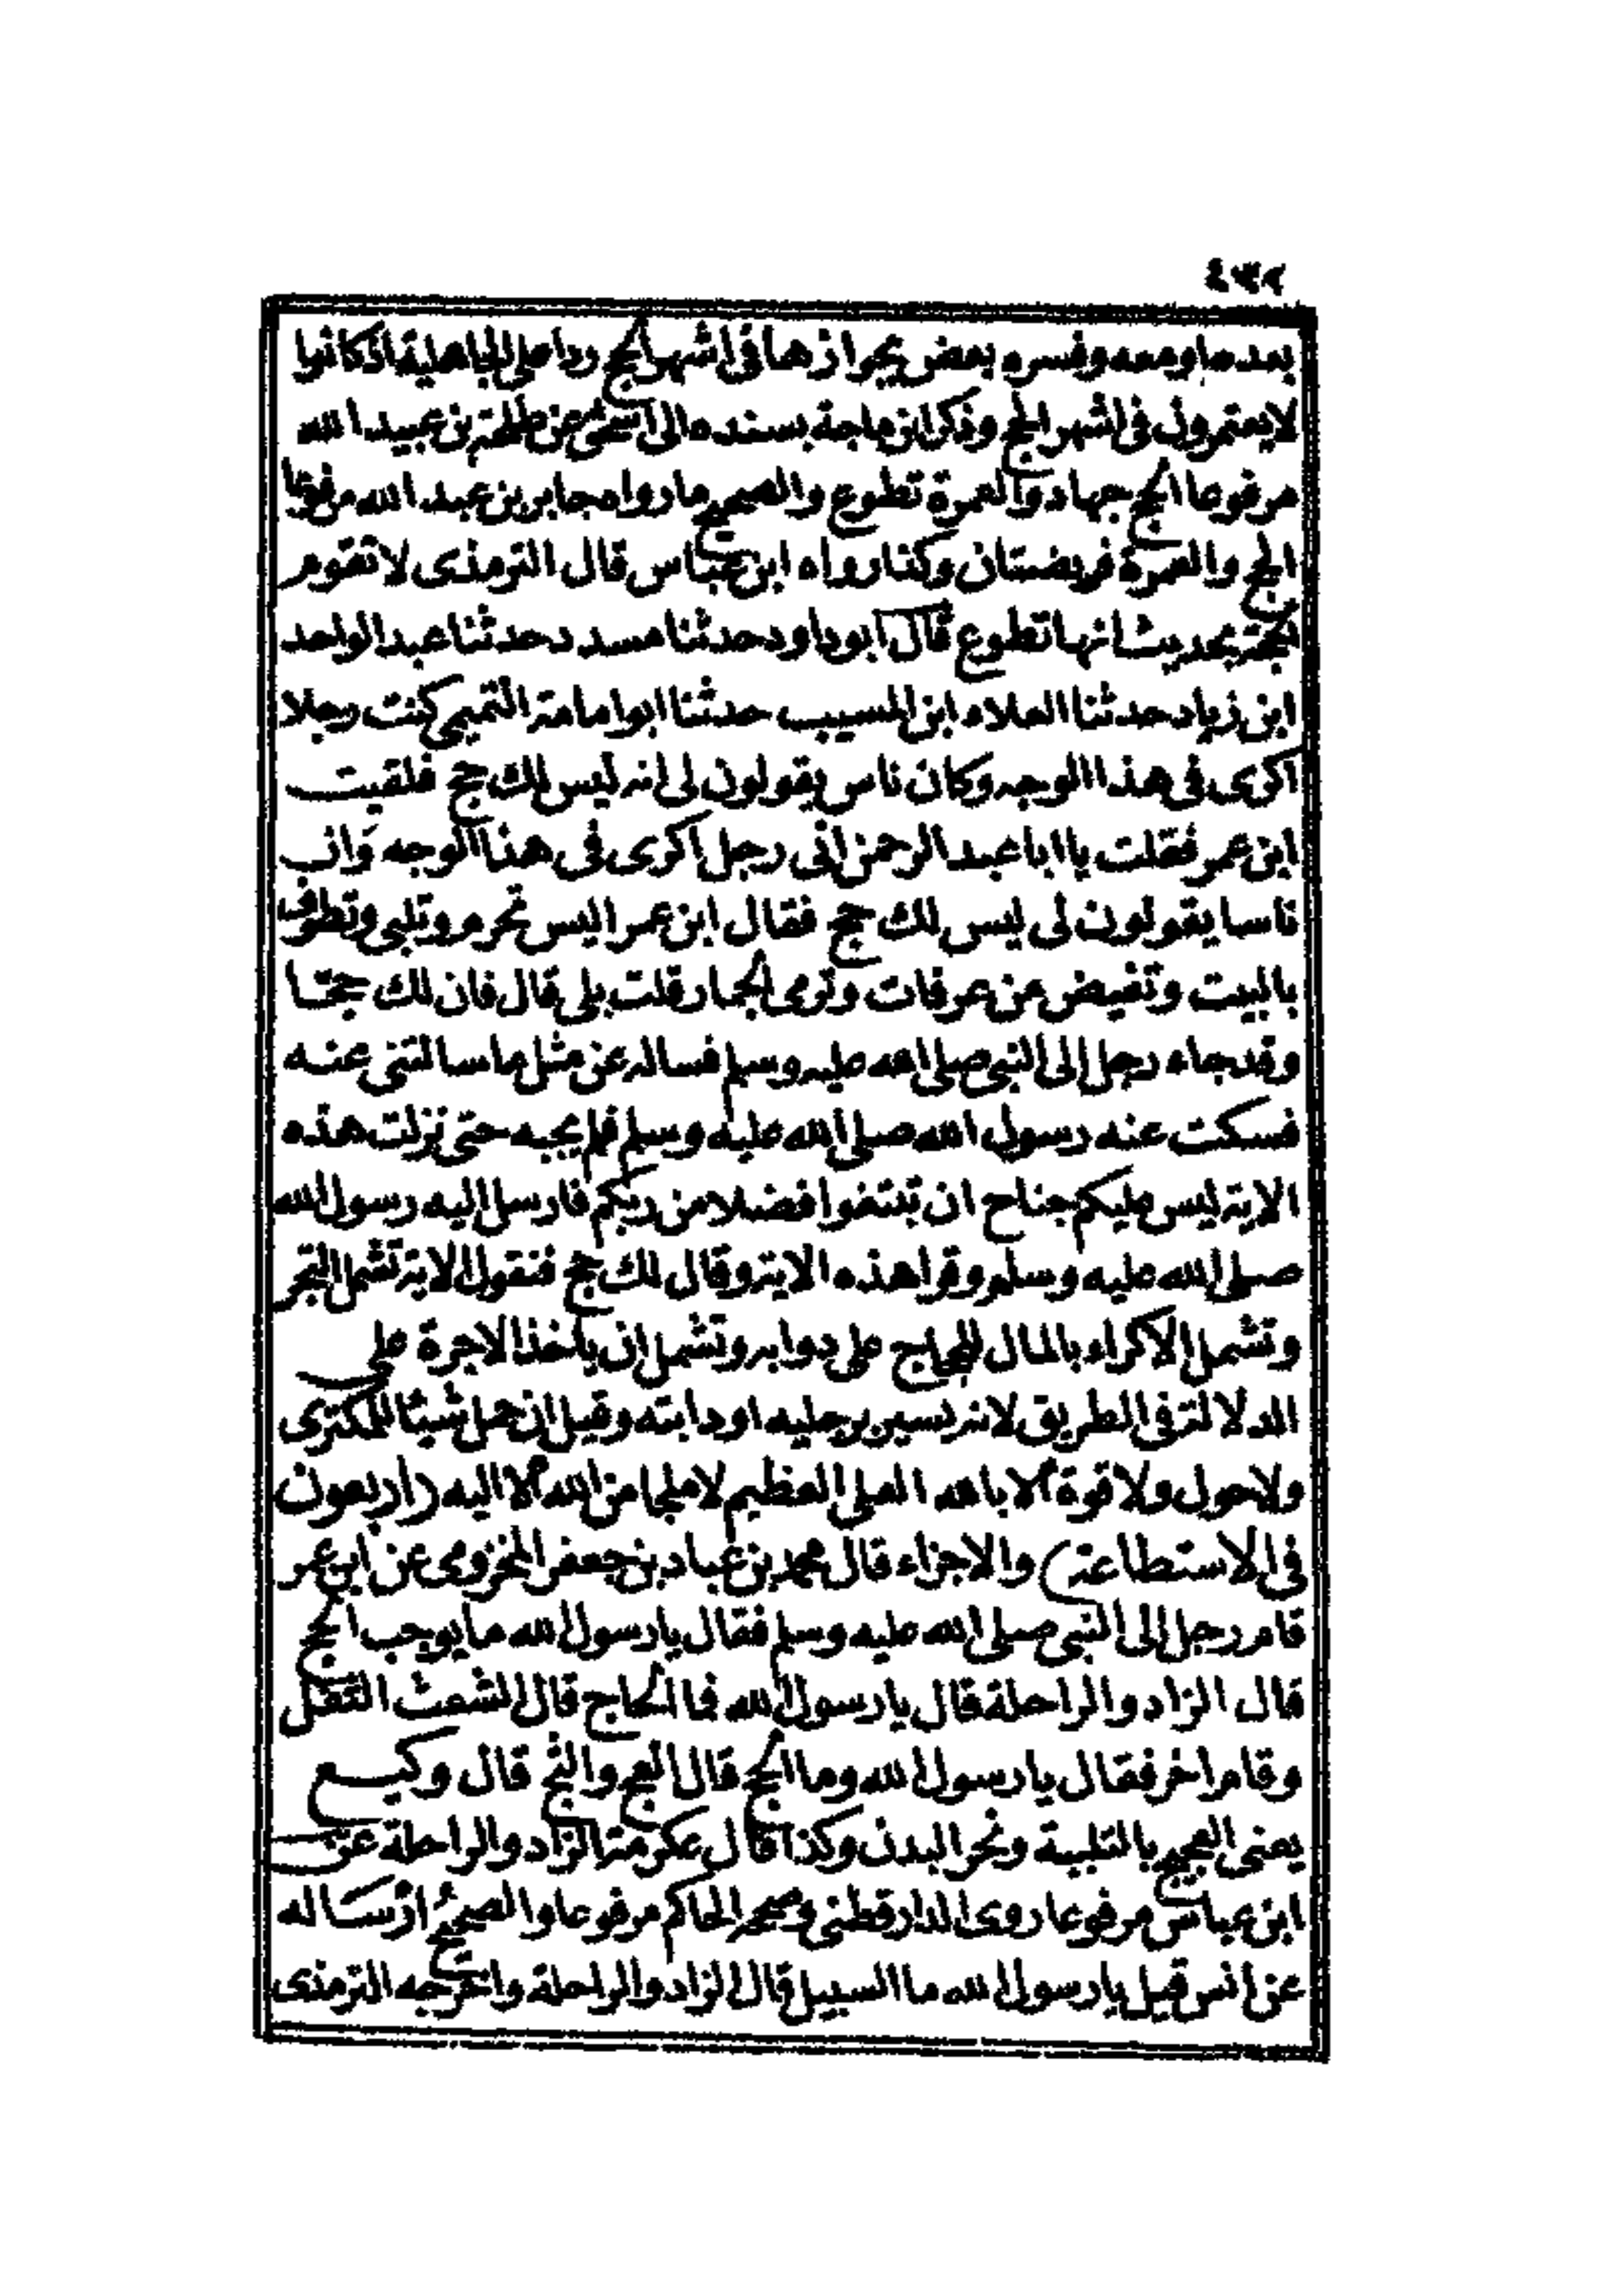 ٤٣٢
بعدها ومعه وفسره بعض بجوازها في اشهر الحج ردا على الجاهلية اذ كانوا
لا يعتمرون في اشهر الحج وذكر ابن ماجة بسنده الى اسحق عن طلحة بن عبيد الله
مرفوعا الحج جهاد والعمرة تطوع والصحيح ما رواه جابر بن عبد الله مرفوعا
الحج والعمرة فريضتان وكذا رواه ابن عباس قال الترمذى لا تقوم
بحجة بحديث انها تطوع قال ابو داود حدثنا مسدد حدثنا عبد الواحد
ابن زياد حدثنا العلاء ابن المسيب حدثنا ابو امامة التميمي كنت رجلا
اكرى في هذا الوجه وكان ناس يقولون لى انه ليس لك حج فلقيت
ابن عمر فقلت يا ابا عبد الرحمن انى رجل اكرى في هذا الوجه وان
ناسا يقولون لى ليس لك حج فقال ابن عمر اليس تحرم وتلبى وتطوف
بالبيت وتفيض من عرفات وترمى الجمار قلت بلى قال فان لك حجا
وقد جاء رجل الى النبي صلى الله عليه وسلم فساله عن مثل ما سالتنى عنه
فسكت عنه رسول الله صلى الله عليه وسلم فلم يجبه حتى نزلت هذه
الاية ليس عليكم جناح ان تبتغوا فضلا من ربكم فارسل اليه رسول الله
صلى الله عليه وسلم وقرا هذه الاية وقال لك حج فنقول الاية تشمل التجر
وتشمل الاكراء بالمال للحجاج على دوابه وتشمل ان ياخذ الاجرة على
الدلالة في الطريق لانه يسير برجليه او دابته وقيل ان حمل شيئا للمكترى
ولا حول ولا قوة الا بالله العلى العظيم لا ملجا من الله الا اليه (اربعون
في الاستطاعة) والاجزاء قال محمد بن عباد بن جعفر المخزومى عن ابن عمر
قام رجل الى النبي صلى الله عليه وسلم فقال يا رسول الله ما يوجب الحج
قال الزاد والراحلة قال يا رسول الله فما الحاج قال الشعث التفل
وقام اخر فقال يا رسول الله وما الحج قال العج والثج قال وكيع
يعنى العجيج بالتلبية ونحر البدن وكذا قال عكرمة الزاد والراحلة عن
ابن عباس مرفوعا روى الدارقطنى وصححه الحاكم مرفوعا والصحيح ارساله
عن انس قيل يا رسول الله ما السبيل قال الزاد والراحلة واخرجه الترمذى